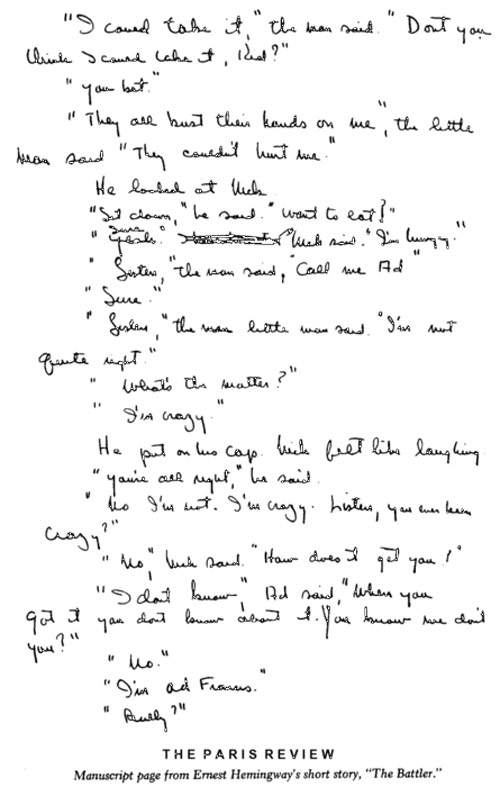 "I could take it," the man said. "Dont you
think I could take it, Kid?"
"you bet."
"They all bust their hands on me", the little
man said "They couldn't hurt me."
He looked at Nick
"Sit down," he said. "want to eat?"
"Sure." Nick said. "I'm hungry."
"Listen," the man said, "Call me Ad"
"Sure."
"Listen," the man little man said. "I'm not
quite right."
"What's the matter?"
"I'm crazy."
He put on his cap. Nick felt like laughing
"you're all right," he said.
"No I'm not. I'm crazy. Listen, you ever been
crazy?"
"No," Nick said. "How does it get you?"
"I dont know", Ad said, "When you
got it you dont know about it. You know me dont
you?"
"No."
"I'm Ad Francis."
"Really?"
THE PARIS REVIEW
Manuscript page from Ernest Hemingway's short story, "The Battler."